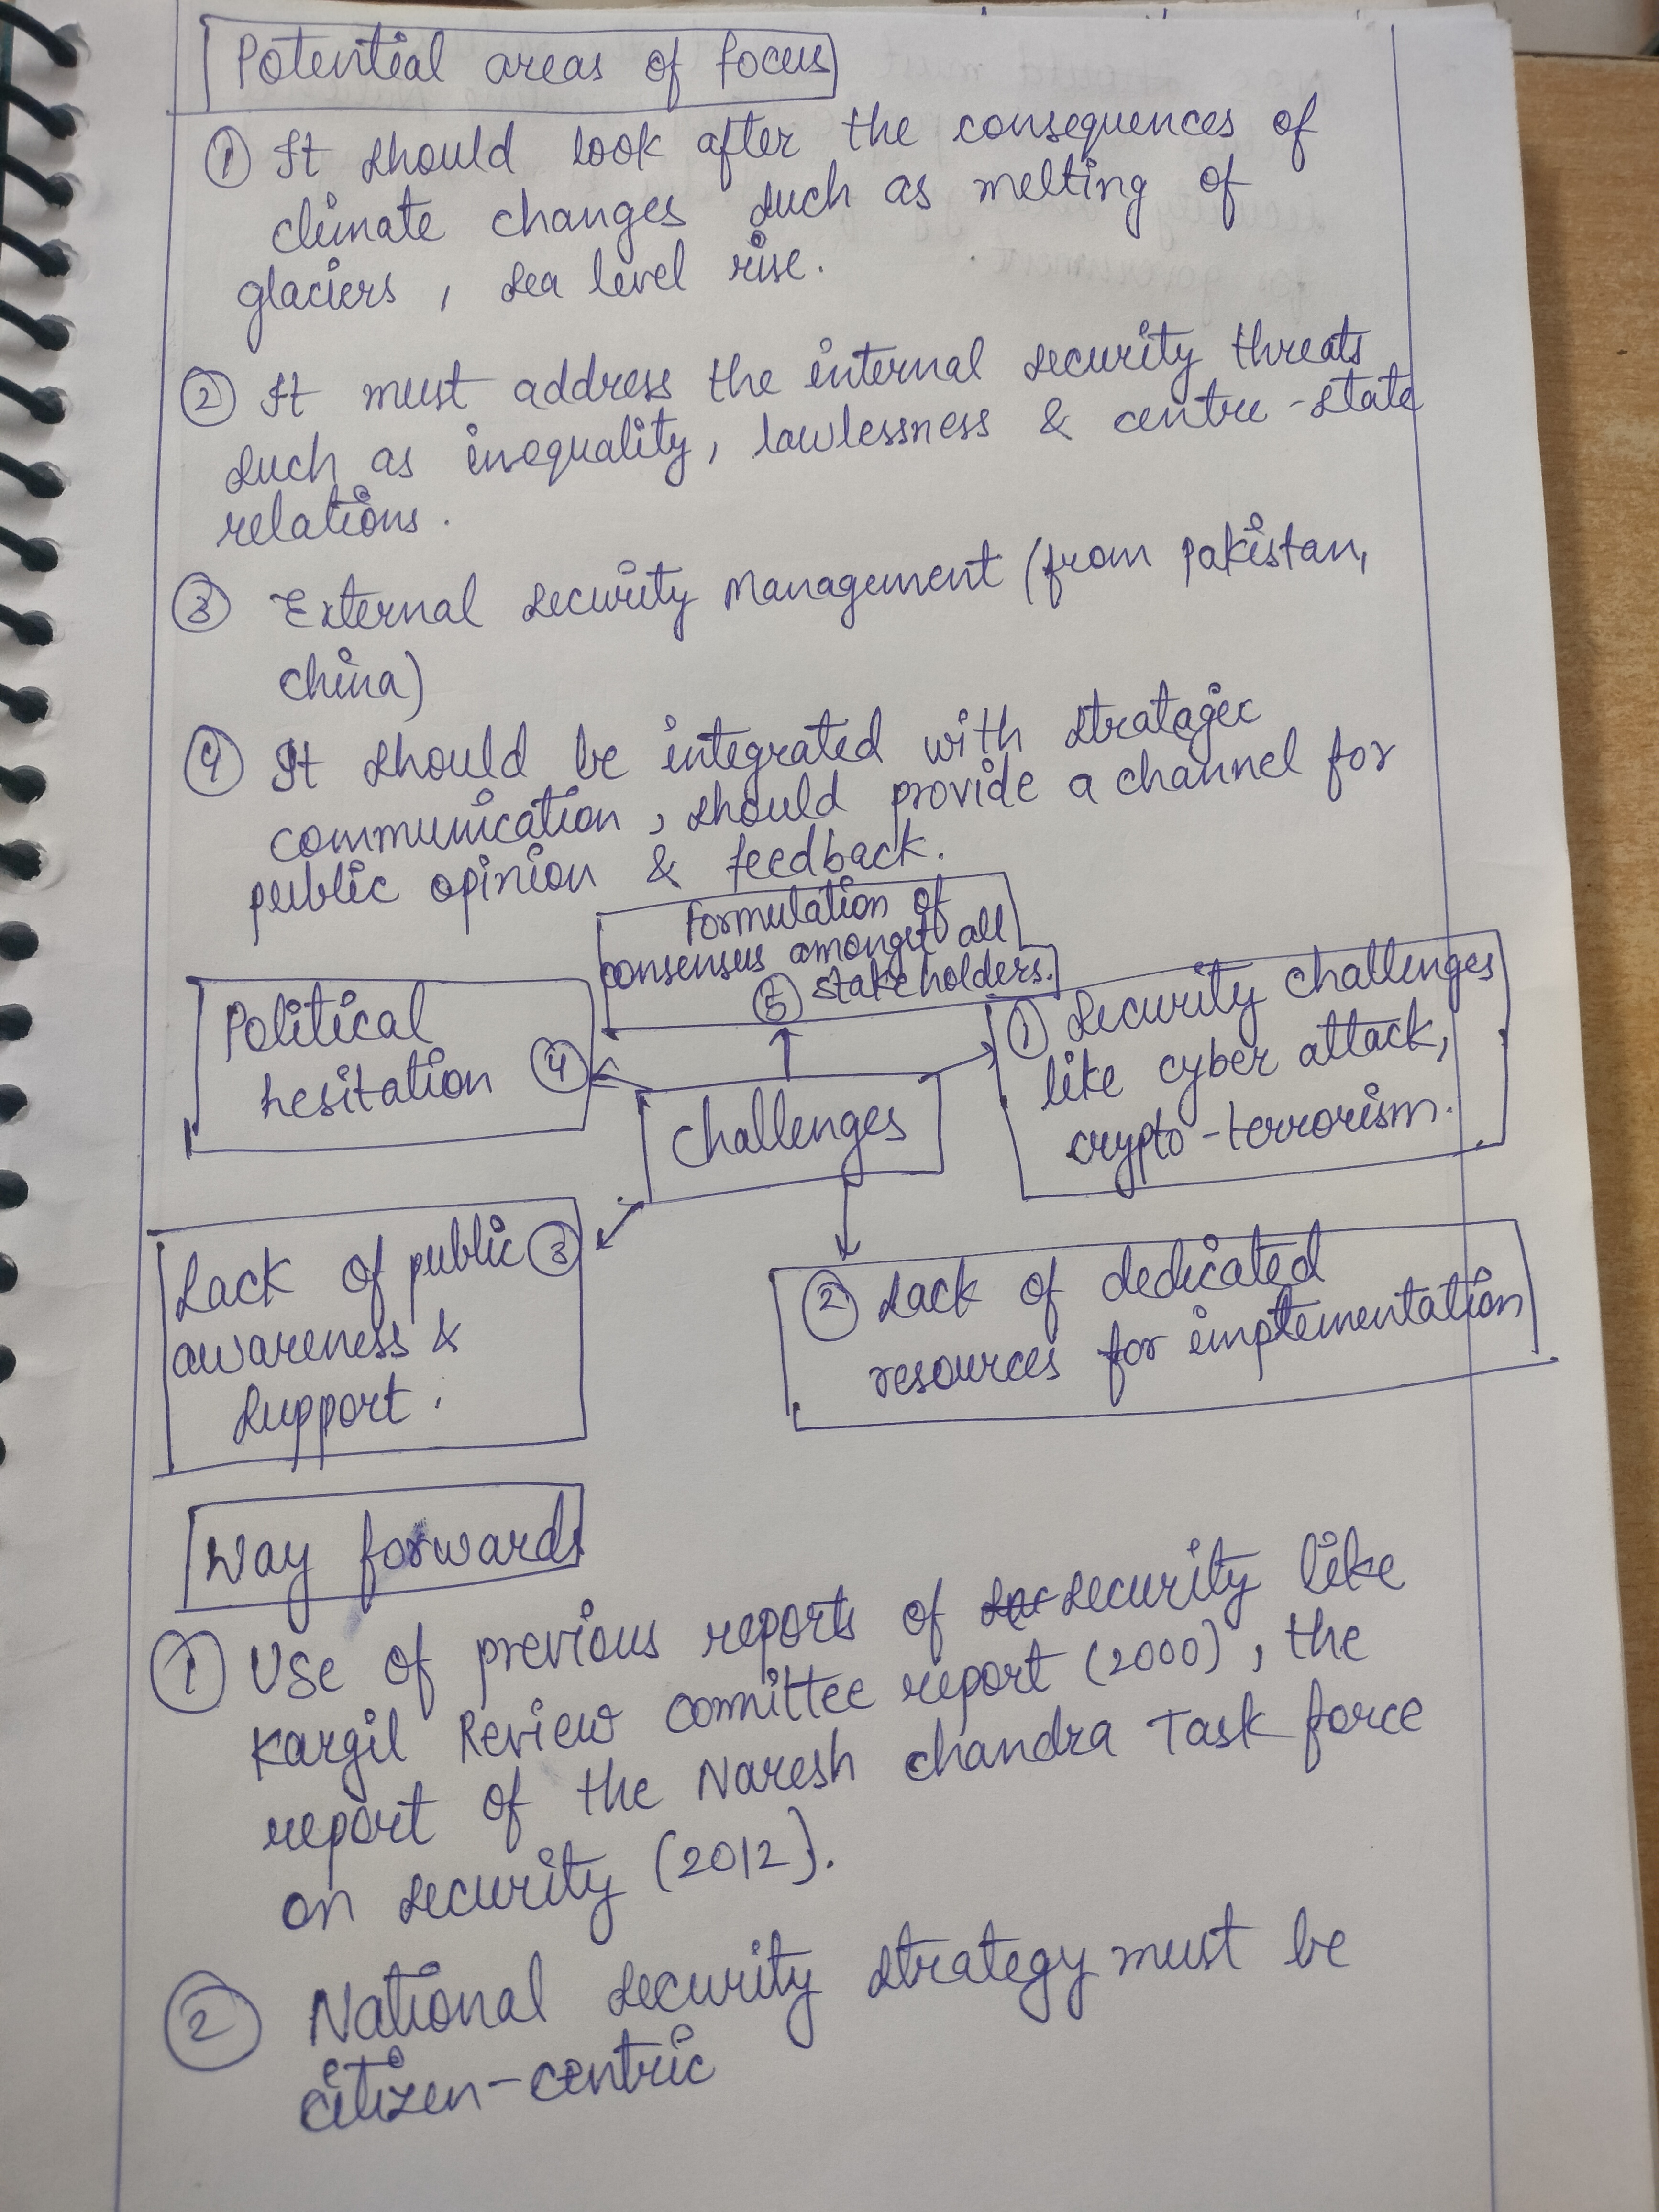 Potential areas of focus
① It should look after the consequences of
climate changes such as melting of
glaciers, sea level rise.
② It must address the internal security threats
such as inequality, lawlessness & centre-state
relations.
③ External security Management (from pakistan,
china)
④ It should be integrated with stratagic
communication, should provide a channel for
public opinion & feedback.
Formulation of
consensus amongst all
⑤ stakeholders.
Political
hesitation ④
① Security challenges
like cyber attack,
crypto-terrorism.
Challenges
Lack of public ③
awareness &
support.
② Lack of dedicated
resources for implementation
Way forward
① Use of previous reports of security like
Kargil Review committee report (2000), the
report of the Naresh chandra Task force
on security (2012).
② National security strategy must be
citizen-centric